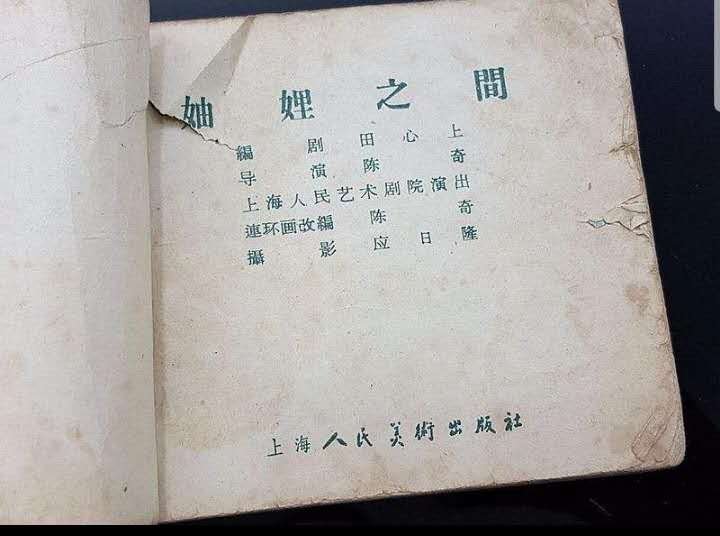 妯娌之間
編劇田心上
导演陈奇
上海人民艺术剧院演出
連环画改編陈奇
攝影应日隆
上海人民美術出版社